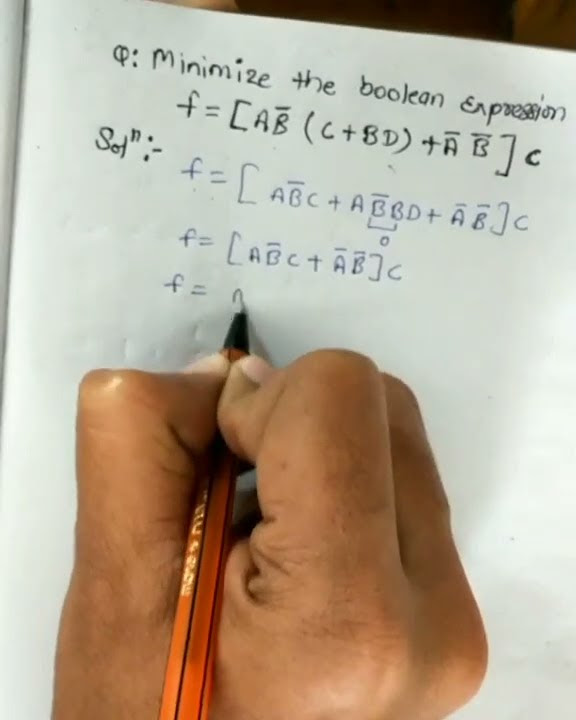 Q: Minimize the boolean Expression
f = [AB̅ (C+BD) + A̅ B̅ ] C
Solⁿ:-
f = [ AB̅C + AB̅BD + A̅ B̅ ] C
0
f = [AB̅C + A̅B̅]C
f =